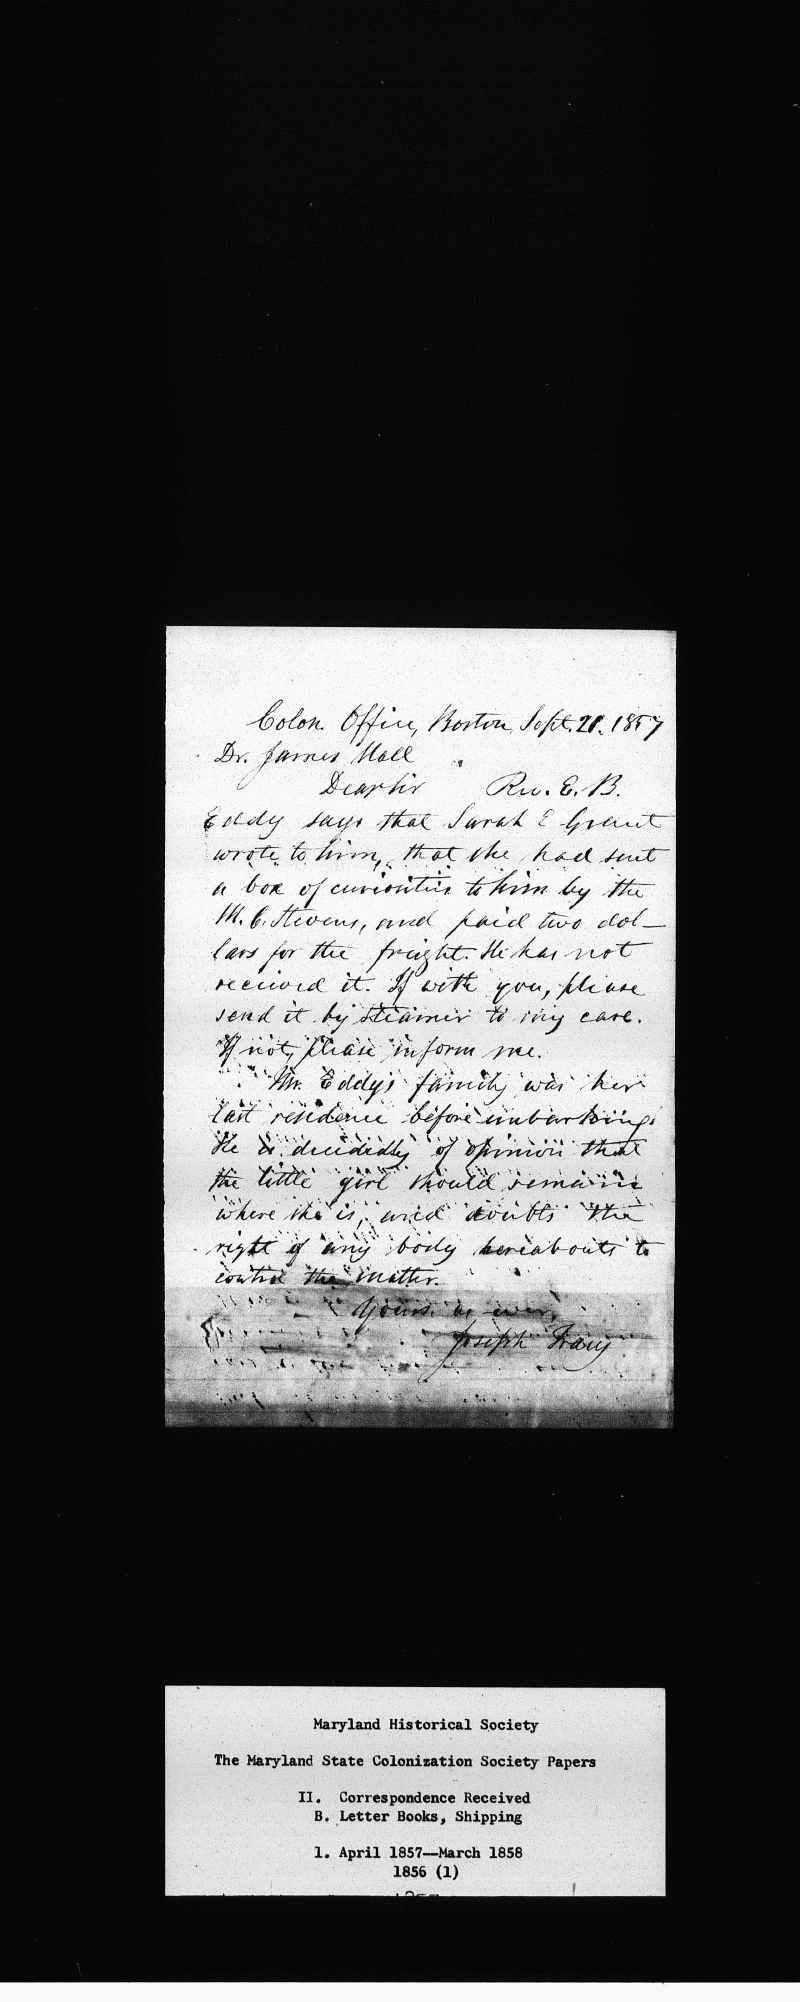 Colon. Office, Boston, Sept. 21. 1857
Dr. James Hall
Dear Sir Rev. E. B.
Eddy says that Sarah E Grant
wrote to him, that she had sent
a box of curiosities to him by the
M. C. Stevens, and paid two dol-
lars for the freight. He has not
received it. If with you, please
send it by steamer to my care.
If not, please inform me.
Mr. Eddy's family was her
last residence before embarking.
He is decidedly of opinion that
the little girl should remain
where she is, and doubts the
right of any body hereabouts to
control the matter.
Yours as ever,
Joseph Tracy
Maryland Historical Society
The Maryland State Colonization Society Papers
II. Correspondence Received
B. Letter Books, Shipping
1. April 1857--March 1858
1856 (1)